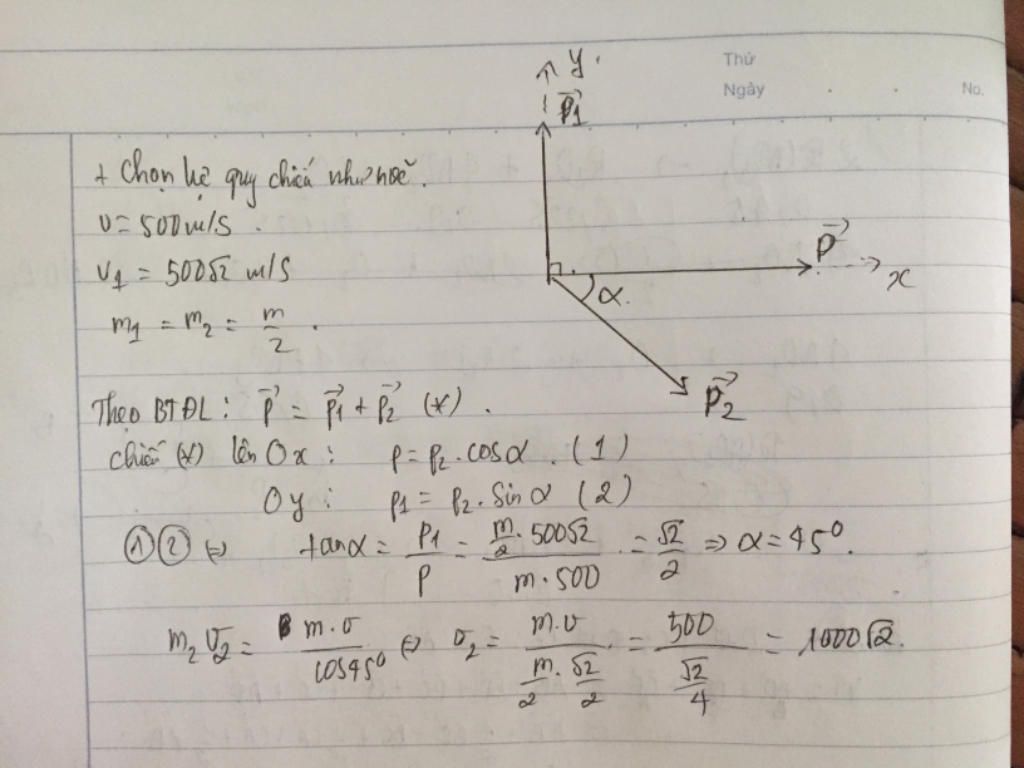 Thứ
Ngày
No.
y
p⃗1
+ Chọn hệ quy chiếu như hình vẽ.
v = 500 m/s.
v1 = 500√2 m/s
m1 = m2 = m/2.
p⃗
x
α
p⃗2
Theo BTĐL: p⃗ = p⃗1 + p⃗2 (*).
chiếu (*) lên Ox: p = p2.cosα. (1)
Oy: p1 = p2.sinα (2)
①② ⇔ tanα = p1/p = (m/2 . 500√2)/(m.500) = √2/2 ⇒ α = 45°.
m2 v2 = m.v/cos45° ⇔ v2 = m.v/(m/2 . √2/2) = 500/(√2/4) = 1000√2.